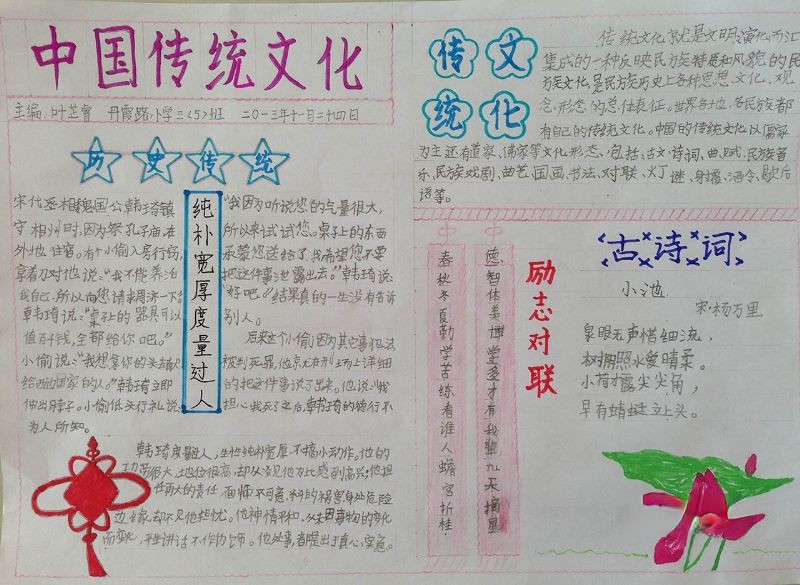 中国传统文化
主编:叶芷睿 丹霞路小学三<5>班 二〇一三年十一月二十四日
历史传统
纯朴宽厚度量过人
宋代丞相魏国公韩琦镇
守相州时,因为祭孔子庙在
外地住宿。有个小偷入房行窃,
拿着刀对他说:“我不能养活
我自己,所以向您请求周济一下。”
韩琦说:“桌上的器具可以
值百千钱,全都给你吧。”
小偷说:“我想拿你的头去献
给西边国家的人。”韩琦立即
伸出脖子。小偷低头行礼说:
“我因为听说您的气量很大,
所以来试试您。桌子上的东西
承蒙您送给了,我希望您不要
把这件事泄露出去。”韩琦说:
“好吧。”结果真的一生没有告诉
别人。
后来这个小偷因为其它事犯法
被判死罪,他京尤在刑场上详细
的把这件事说了出来。他说:“我
担心我死了之后,韩琦的德行不
为人所知。
韩琦度量过人,生性纯朴宽厚,不搞小动作。他的
功劳很大,地位很高,却从没见他为此感到高兴;他担
任再大的责任,面临不可意料的祸害,身处危险
边缘,却不见他担忧。他神情平和,从未因事物的变化
而变化,平生讲话不作伪饰。他处事都是出于真心实意。
传文
统化
传统文化就是文明演化而汇
集成的一种反映民族特质和风貌的民
族文化,是民族历史上各种思想、文化、观
念、形态的总体表征。世界各地,各民族都
有自己的传统文化。中国的传统文化以儒家
为主还有道家、佛家等文化形态、包括:古文、诗词、曲、赋、民族音
乐、民族戏剧、曲艺、国画、书法、对联、灯谜、射覆、酒令、歇后
语等。
励志对联
德智体美博学多才有我辈九天摘星
春秋冬夏勤学苦练看谁人蟾宫折桂
古诗词
小池
宋·杨万里
泉眼无声惜细流,
树阴照水爱晴柔。
小荷才露尖尖角,
早有蜻蜓立上头。